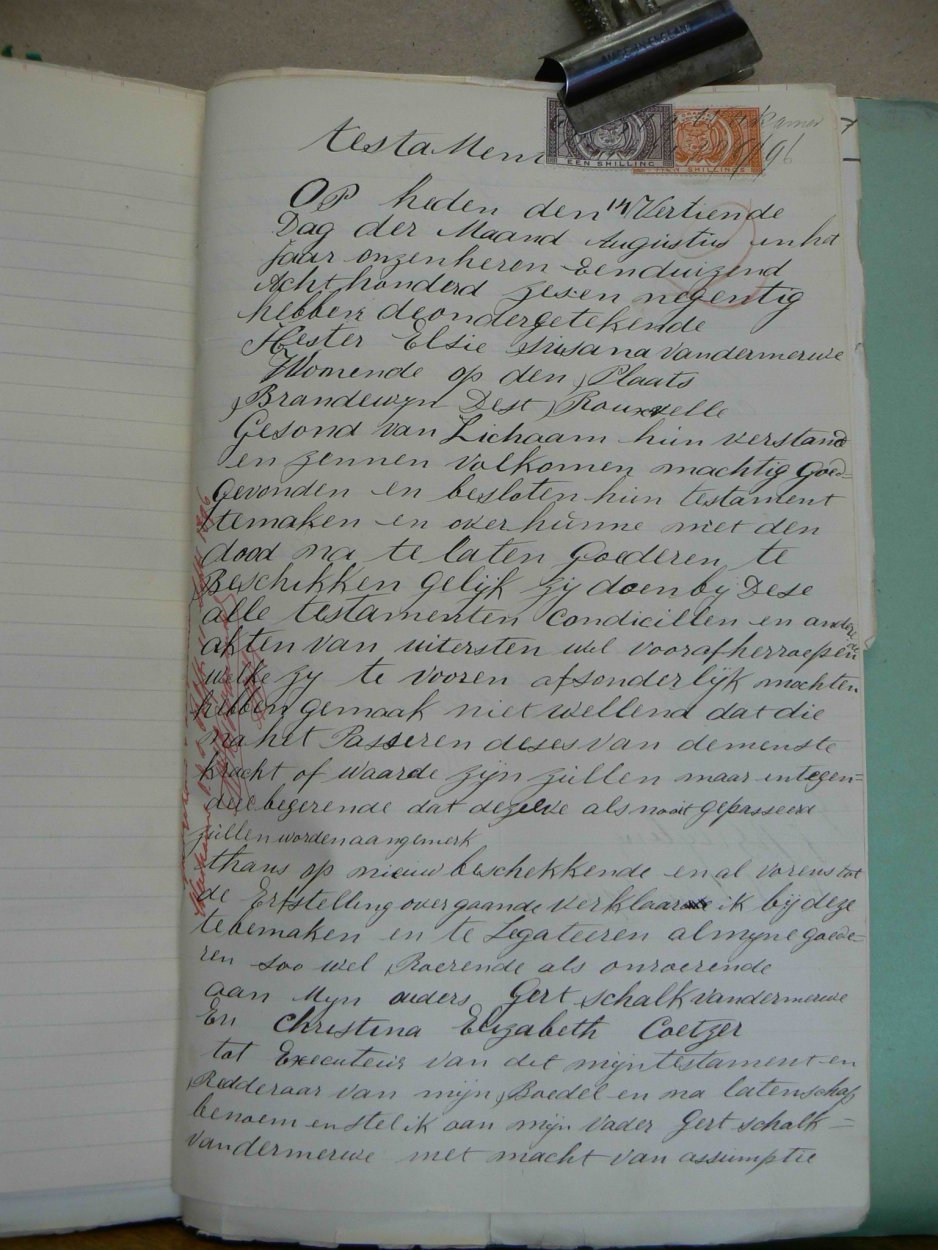 testament
EEN SHILLING
SHILLINGS
1896
Op heden den 14 Vertiende
Dag der Maand Augustus in het
Jaar onzenheren Eenduizend
Achthonderd zes en negentig
hebben deondergetekende
Hester Elsie Susana vandermerwe
Wonende op den Plaats
Brandewyn Dest Rouxvelle
Gesond van Lichaam hün verstand
en zennen volkomen machtig goed=
gevonden en besloten hün testament
temaken en over hünne met den
dood na te laten goederen te
Beschikken gelijk zij doen by Dese
alle testamenten Condicillen en andere
akten van uitersten wel voorafherroepen
welke zy te vooren afsonderlijk mochten
hebben gemaak niet wellend dat die
na het Passeren deses van de menste
kracht of waarde zijn züllen maar integen=
deel begerende dat dezelve als nooit gepasseerd
züllen worden aangemerk
thans op nieuw beschekkende en al vorens tot
de Erfstelling overgaande verklaar ik bij deze
tebemaken en te Legateeren al myne goede=
ren soo wel Roerende als onroerende
aan Myn ouders Gert Schalk vandermerwe
En Christina Elizabeth Coetzer
tot Executeür van dit mijn testament en
Redderaar van mijn Boedel en na latenschap
benoem en stel ik aan mijn vader Gert schalk=
vandermerwe met macht van assumptie